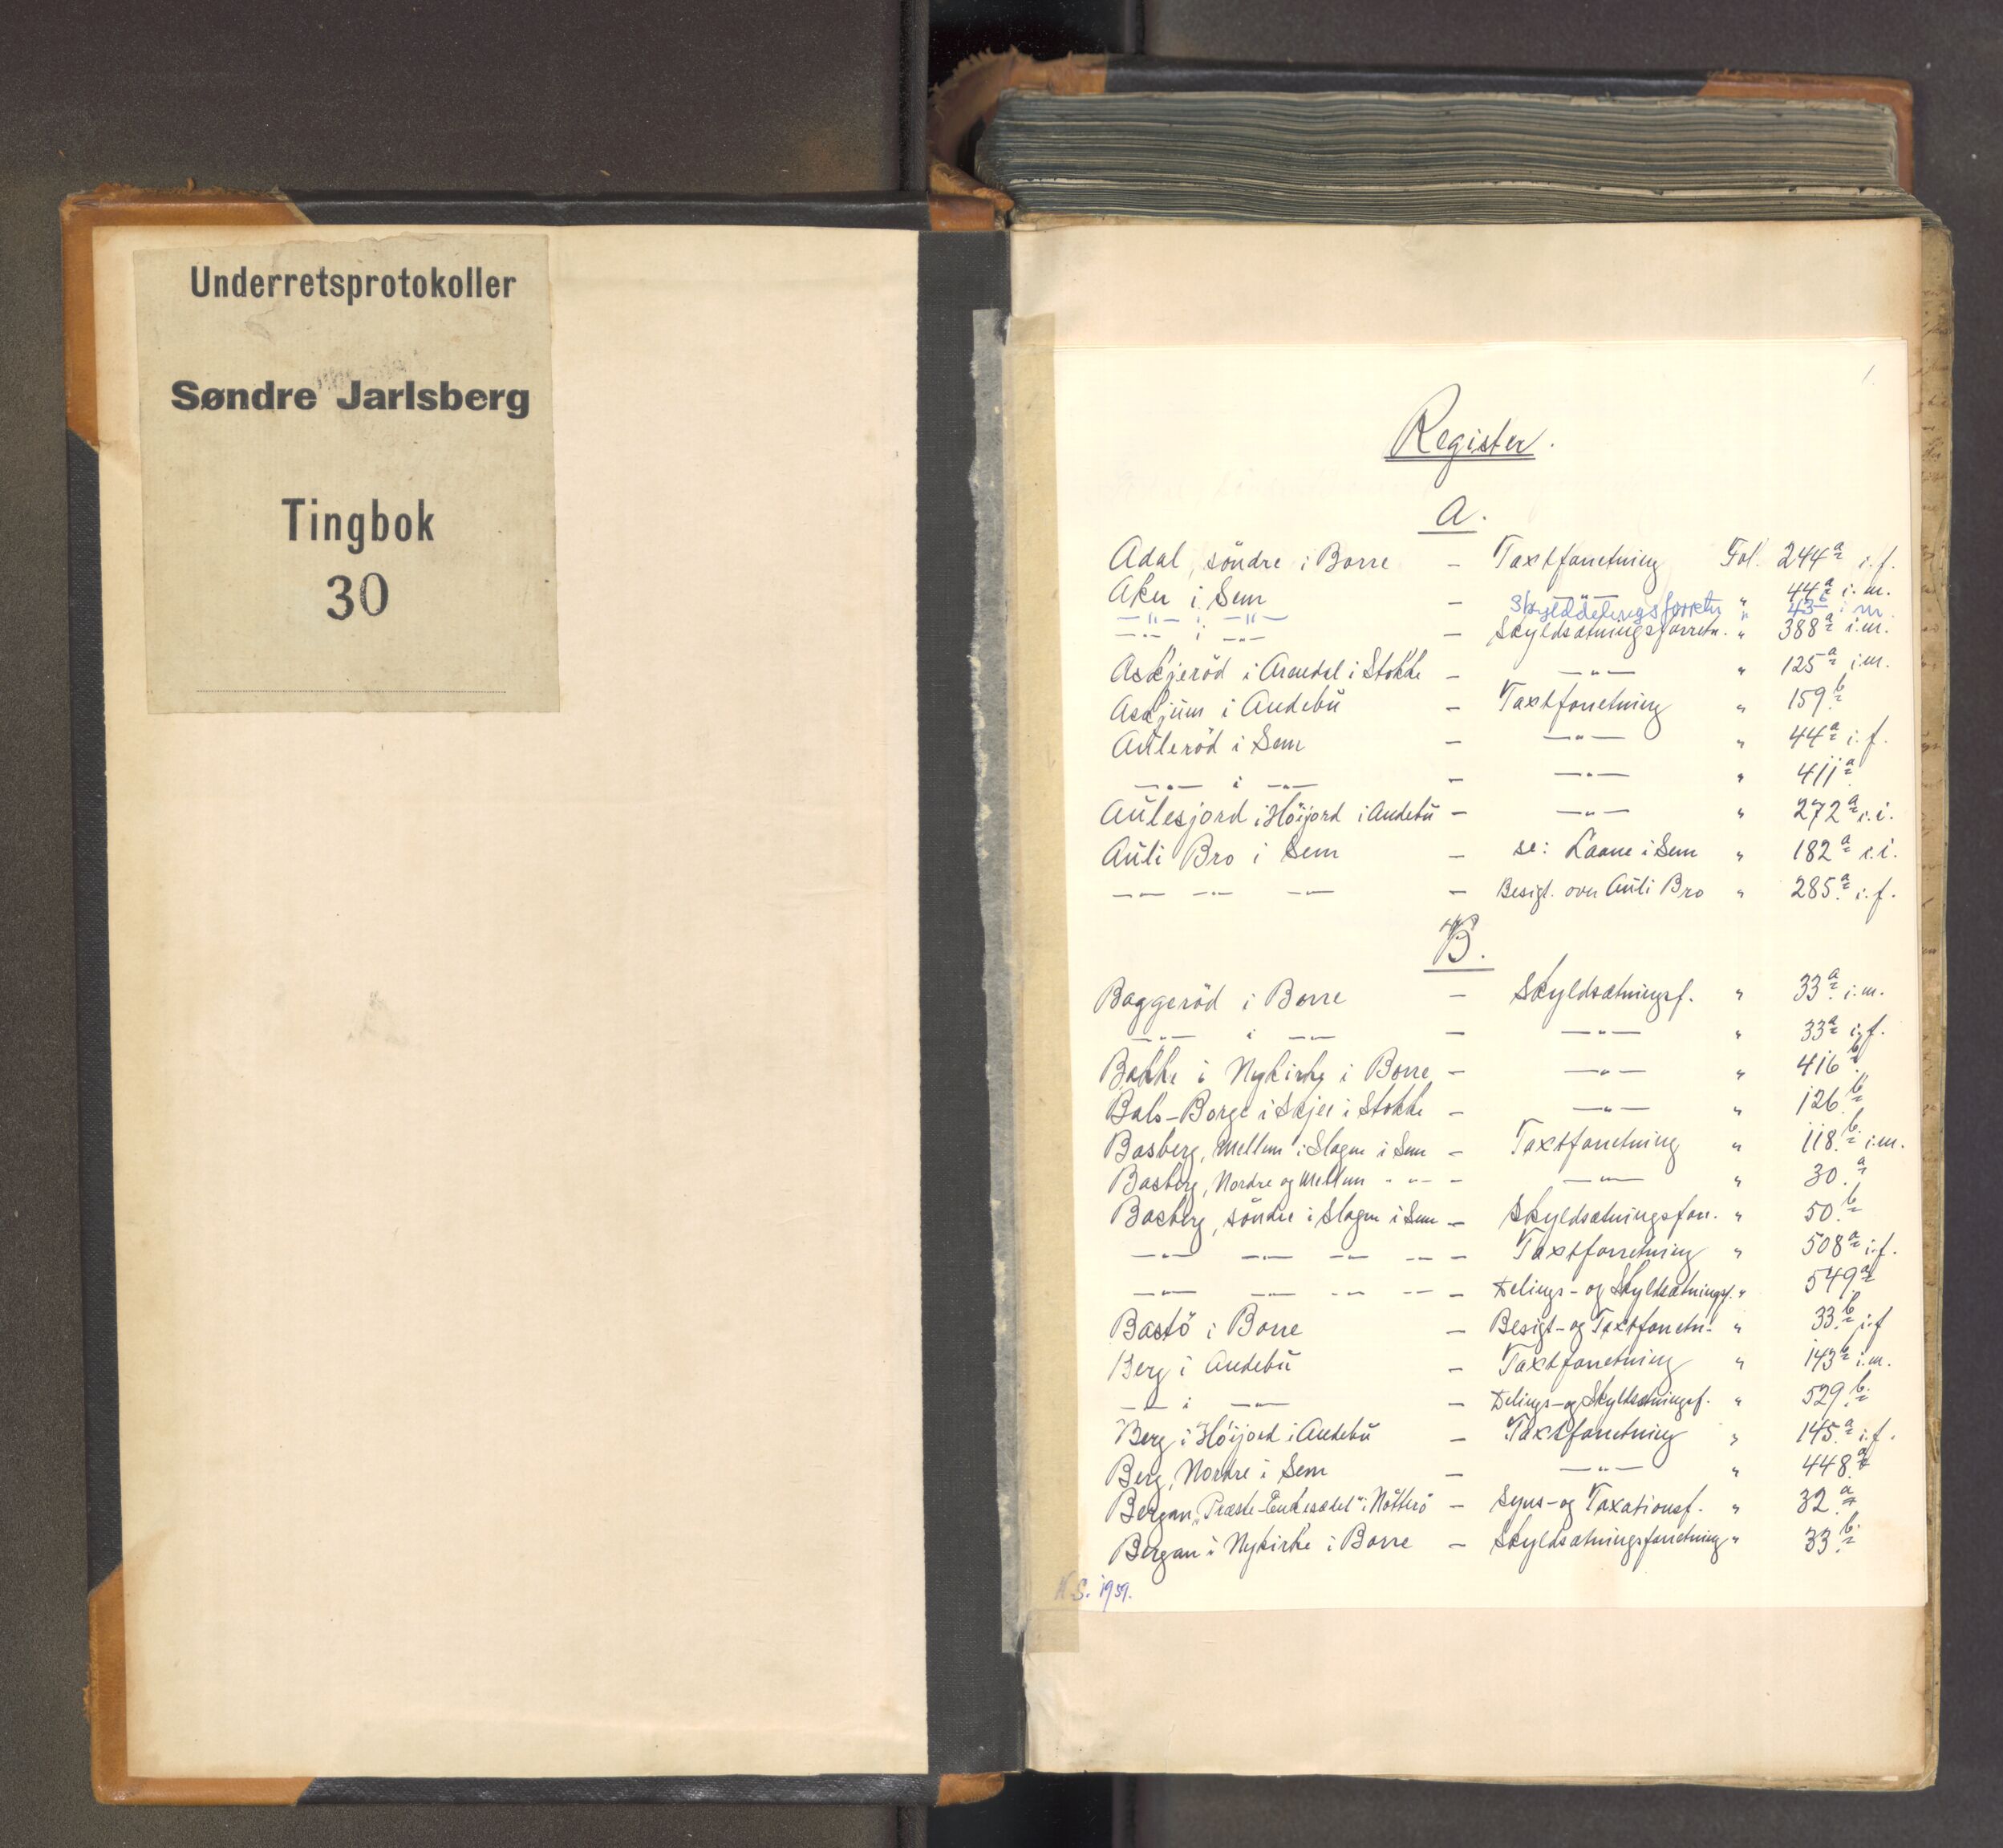 Underretsprotokoller
Søndre Jarlsberg
Tingbok
30
1.
Register.
A.
Adal, söndre i Borre - Taxtforretning Fol. 244a i.f.
Aker i Sem - -"- " 44a i.m.
-"- i -"- Skylddelingsforretn " 43b i m
-"- i -"- - Skyldsætningsforretn. " 388a i.m.
Askjeröd i Arendal i Stokke - -"- " 125a i.m.
Askjum i Andebu - Taxtforretning " 159b
Auleröd i Sem - -"- " 44a i.f.
-"- i -"- - -"- " 411a
Aulesjord i Höijord i Andebu - -"- " 272a i.i.
Auli Bro i Sem - se: Laane i Sem " 182a i.i.
-"- -"- -"- - Besigt. over Auli Bro " 285a i.f.
B.
Baggeröd i Borre - Skyldsætningsf. " 33a i.m.
-"- i -"- - -"- " 33a i.f.
Bakke i Nykirke i Borre - -"- " 416b
Bals-Borge i Skjee i Stokke - -"- " 126b
Basberg, Mellem i Slagen i Sem - Taxtforretning " 118b i.m.
Basberg, Nordre og Mellem - "- - -"- " 30.a
Basberg, söndre i Slagen i Sem - Skyldsætningsforr. " 50.b
-"- -"- -"- -"- - Taxtforretning " 508a i.f.
-"- -"- -"- -"- - Delings- og Skyldsætningsf. " 549a
Bastö i Borre - Besigt- og Taxtforretn- " 33.b i.f
Berg i Andebu - Taxtforretning " 143b i.m.
-"- i -"- - Delings- og Skyldsætningsf. " 529.b
Berg i Höijord i Andebu - Taxtforretning " 145.a i.f.
Berg, Nordre i Sem - -"- " 448.a
Bergan, "Præste-Enkesædet" i Nötterö - Syns- og Taxationsf. " 32.a
Bergan i Nykirke i Borre - Skyldsætningsforretning " 33.b
N.S. 1959.